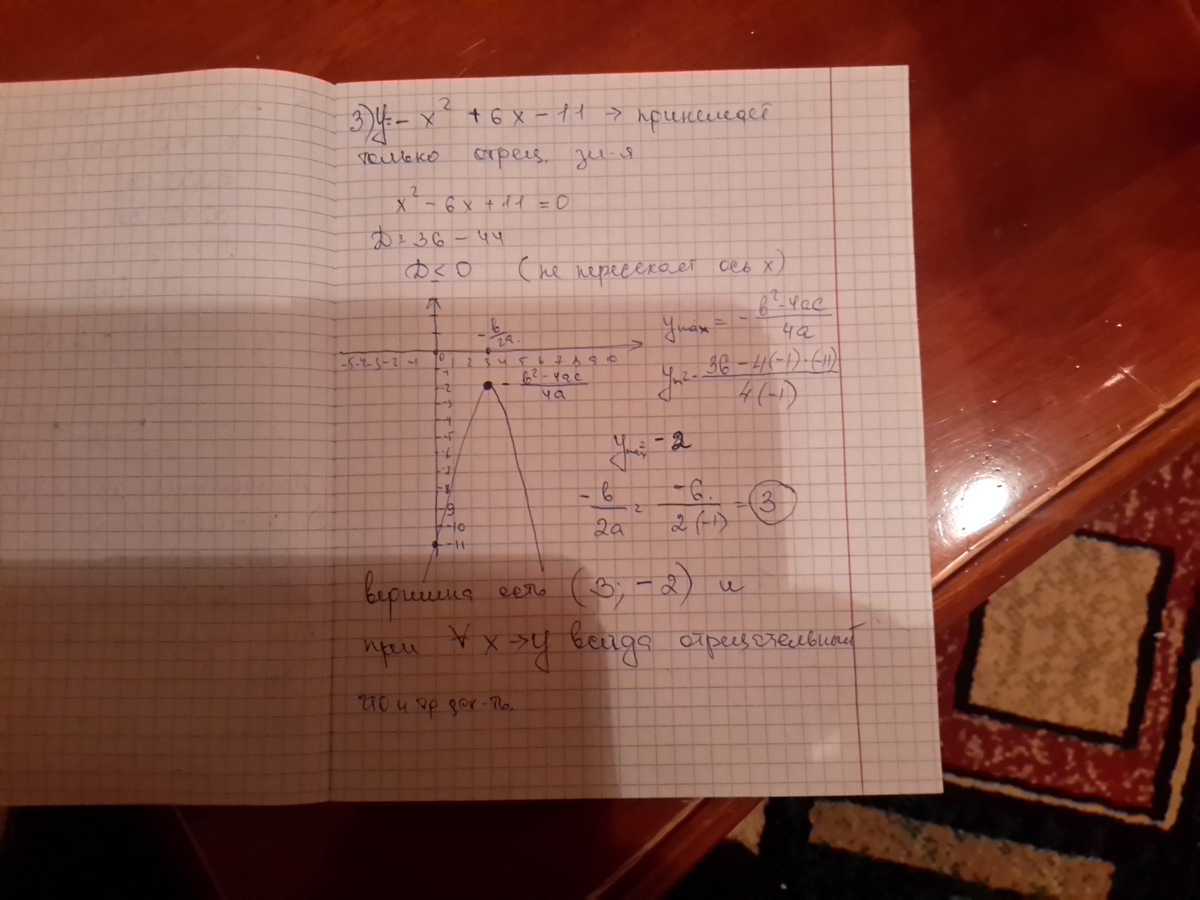 3) y = - x² + 6x - 11 → принимает
только отриц. зн-я
x² - 6x + 11 = 0
D = 36 - 44
D < 0 (не пересекает ось x)
y max = - b² - 4ac / 4a
- b / 2a
-5 -4 -3 -2 -1 0 1 2 3 4 5 6 7 8 9 10
- b² - 4ac / 4a
y m = - 36 - 4(-1)·(-11) / 4(-1)
-1
-2
-3
-4
-5
-6
-7
-8
-9
-10
-11
y = -2
- b / 2a = -6 / 2(-1) = 3
вершина есть (3; -2) и
при ∀ x → y всегда отрицательный
что и тр док-ть.